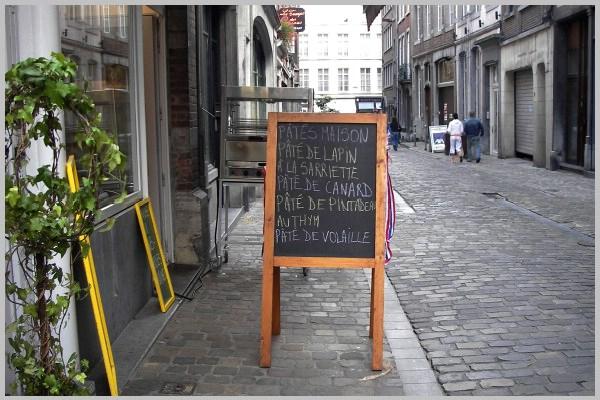 PÂTÉS MAISON
PÂTÉ DE LAPIN
A LA SARRIETTE
PÂTÉ DE CANARD
PÂTÉ DE PINTADEAU
AU THYM
PÂTÉ DE VOLAILLE